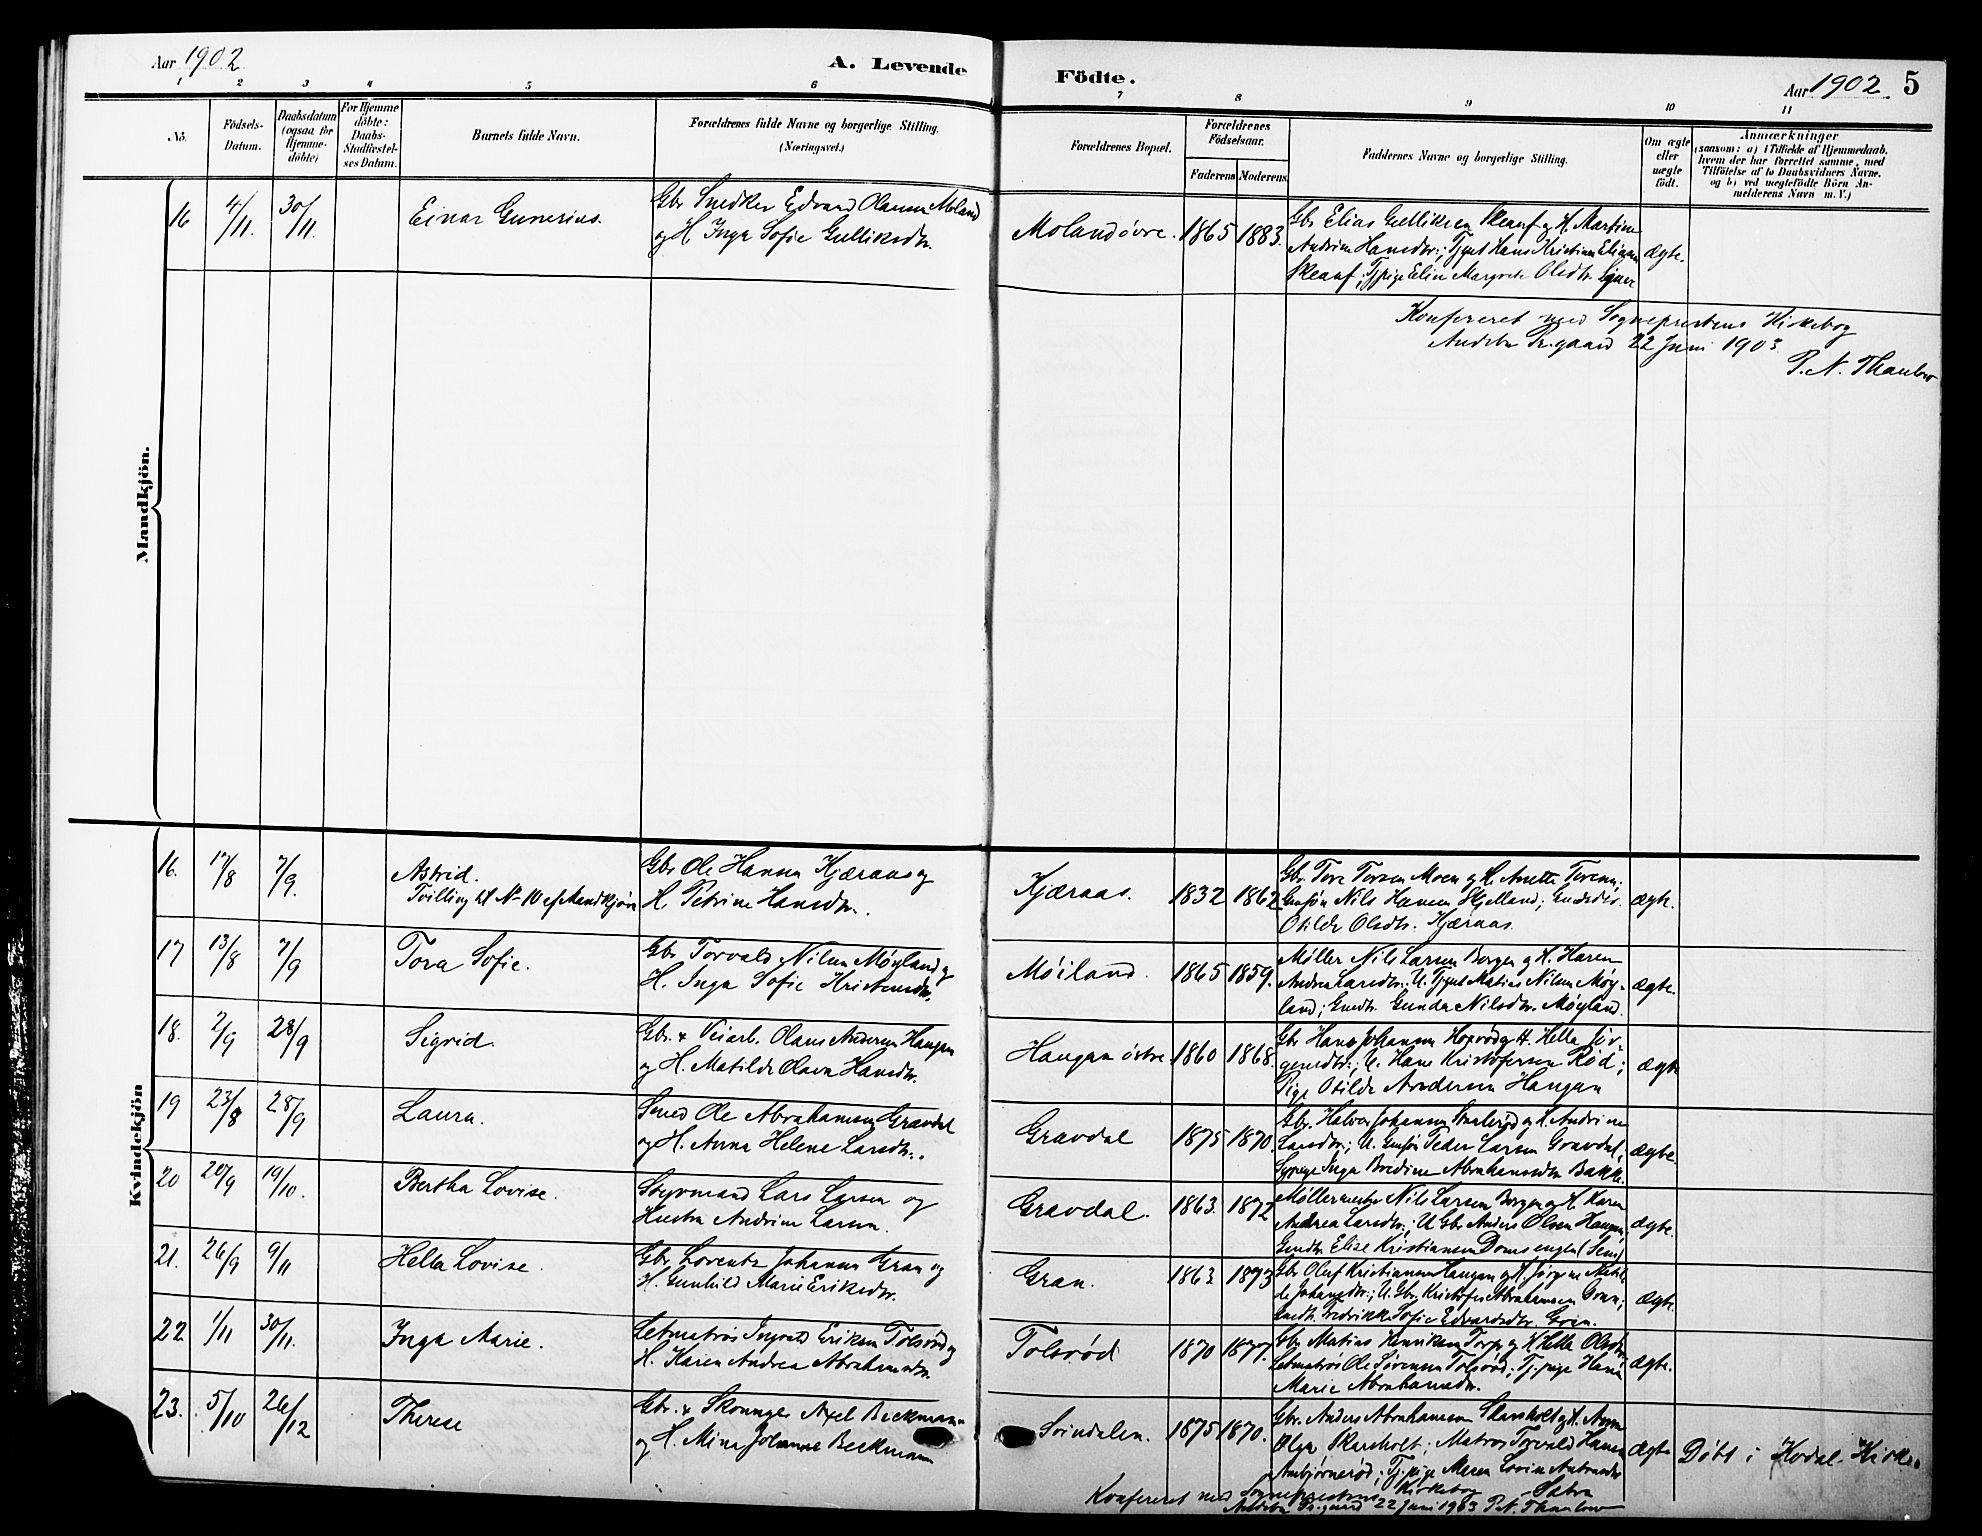 Aar 1902
A. Levende
Födte.
Aar 1902.
5
1 2 3 4 5 6 7 8 9 10 11
No.
Födsels-
Datum.
Daabsdatum
(ogsaa for
Hjemme-
döbte)
For Hjemme
döbte:
Daabs-
Stadfæstel-
ses Datum.
Barnets fulde Navn.
Forældrenes fulde Navne og borgerlige Stilling.
(Næringsvei.)
Forældrenes Bopæl.
Forældrenes
Födselsaar.
Faderens
Moderens
Faddernes Navne og borgerlige Stilling.
Om ægte
eller
uægte
födt.
Anmærkninger
(saasom: a) i Tilfælde af Hjemmedaab,
hvem der har forrettet samme, med
Tilföielse af to Daabsvidners Navne,
og b) ved uægtefödte Börn An-
melderens Navn m. V.)
Mandkjön.
16 4/11. 30/11. Einar Gunerius.
Gbr Snedker Edvard Olausen Moland
og H. Inga Sofie Gulliksdtr.
Moland övre. 1865 1883.
Gbr Elias Gulliksen Skauf og H. Martine
Andrine Hansdtr.; Tjgut Hans Kristian Eliasen
Skauf; Tjpige Elin Margrete Olsdtr.
ægte.
Konfereret med Sogneprestens Kirkebog
Andebu Pr.gaard 22 Juni 1903
P. N. Thaulow
Kvindekjön
16. 17/8 7/9. Astrid.
Tvilling til No 10 af Mandkjön
Gbr Ole Hansen Kjæraas og
H. Petrine Hansdtr.
Kjæraas. 1832 1862
Gbr Tore Torsen Moen og H. Anette Toresen;
Gmsön Nils Hansen Skjelland; Gmdsdtr.
Otilde Olsdtr. Kjæraas.
ægte.
17 13/8 7/9 Tora Sofie.
Gbr Torvald Nilsen Möyland og
H. Inga Sofie Kristensdtr.
Möiland. 1865 1859.
Möller Nils Larsen Borgen og H. Karen
Andrea Larsdtr.; U. Tjgut Matias Nilsen Möy-
land; Gmdtr. Gunda Nilsdtr. Möyland.
ægte.
18. 2/9 28/9 Sigrid.
Gbr. & Veiarb. Olaus Andersen Haugan
og H. Matilde Olava Hansdtr.
Haugan östre 1860 1868.
Gbr Hans Johansen Hopröd og H. Hella Jör-
gensdtr.; U. Hans Kristofersen Röd;
Pige Otilde Andersen Haugan
ægte
19 23/8 28/9 Laura.
Smed Ole Abrahamsen Gravdal
og H. Anna Helene Larsdtr.
Gravdal 1875 1870.
Gbr. Halvor Johansen og H. Andrine
Larsdtr.; U. Gmsön Peder Larsen Gravdal;
Sypige Inga Bredine Abrahamsdtr. Bakke.
ægte.
20 20/9 19/10. Bertha Lovise.
Styrmand Lars Larsen og
Hustru Andrine Larsen.
Gravdal. 1863. 1872
Möllermester Nils Larsen Borgen og H. Karen
Andrea Larsdtr.; U. Gbr Anders Olsen Haugan;
Gmdtr. Elise Kristiansen Domsengen (Sem)
ægte.
21. 26/9 9/11 Hella Lovise.
Gbr Lorentz Johansen Gran og
H. Gunhild Marie Eriksdtr.
Gran. 1863 1873
Gbr Oluf Kristiansen Haugan og H. Jörgine Matil-
de Johansdtr.; U. Gbr Kristofer Abrahamsen Gran;
Gmdtr. Fredrikke Sofie Edvardsdtr. Gran.
ægte.
22 1/11 30/11. Inga Marie.
Letmatros Ingvald Eriksen Tolsröd og
H. Karen Andrea Abrahamsdtr.
Tolsröd 1870 1877.
Gbr Matias Henriksen Torp og H. Hella Olsdtr.
Letmatros Ole Sörensen Tolsröd; Tj. pige Hanna
Marie Abrahamsdtr.
ægte.
23. 5/10 26/12 Therese
Gbr. & Skomager Axel Beckmann
og H. Mina Johanne Beckmann
Soindalen. 1875 1870.
Gbr. Anders Abrahamsen Skarsholt og H. Anne
Olga Skarsholt; Matros Torvald Hansen
Anbjörneröd; Tj. pige Maren Lovise
ægte
Döbt i Kodal Kirke.
Konfereret med Sogneprestens Kirkebog
Andebu Pr.gaard 22 Juni 1903 P. N. Thaulow